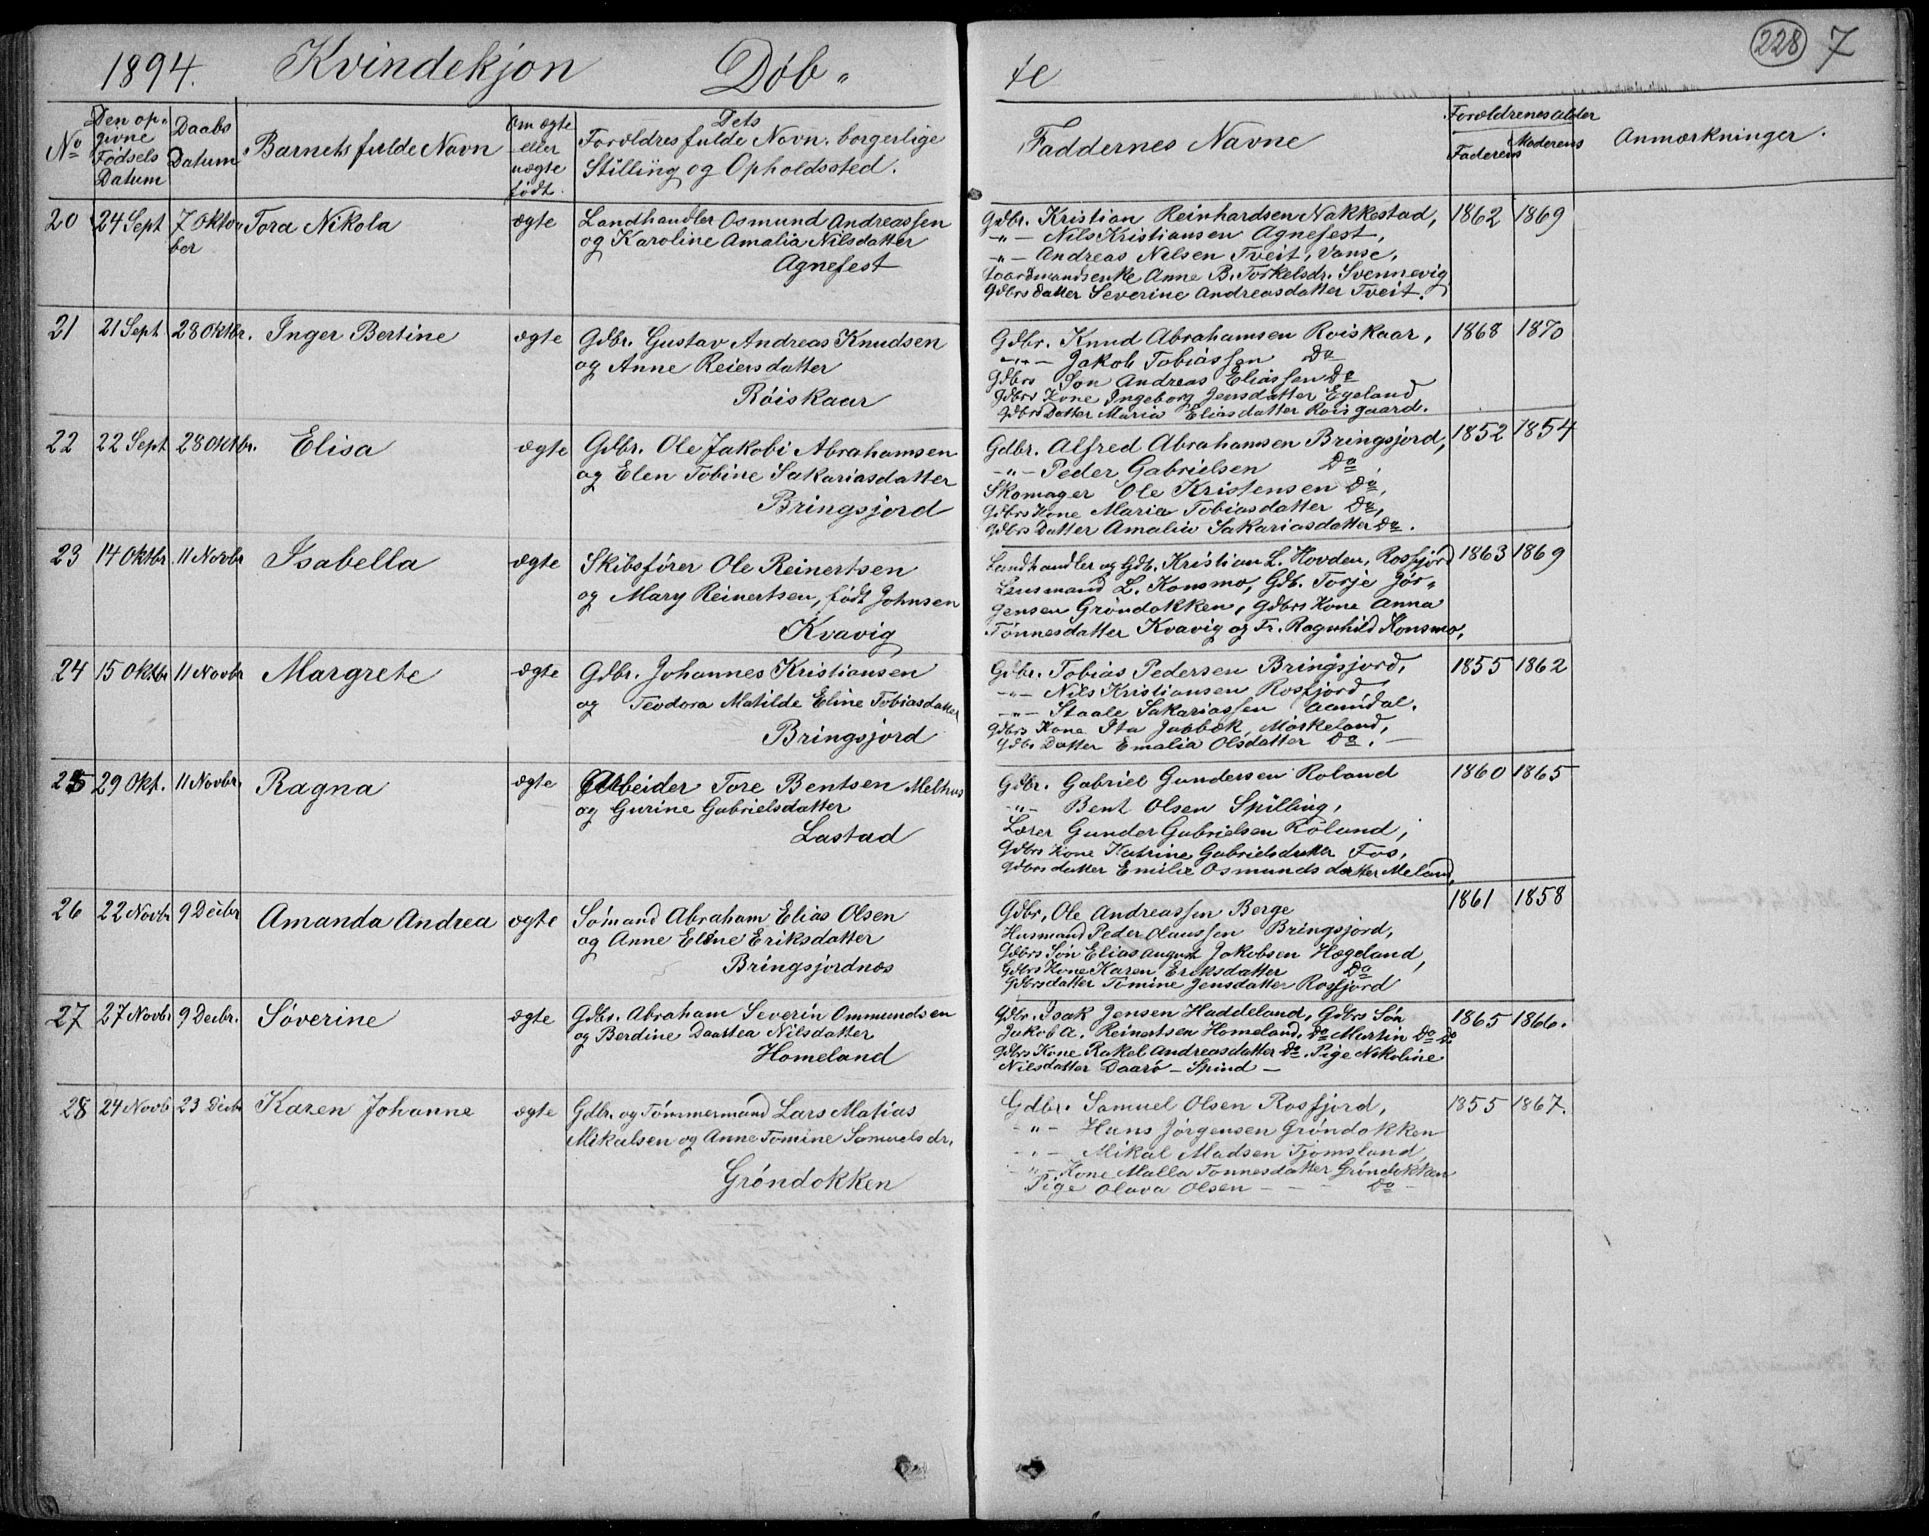 1894. Kvindekjøn Døb„ te 228 7
No Den op„givne Fødsels Datum Daabs Datum Barnets fulde Navn Om ægte eller uægte født. Dets Forældres fulde Navn, borgerlige Stilling og Opholdssted. Faddernes Navne Forældrenes alder Faderens Moderens Anmærkninger.
20 24 Sept 7 Okto„ber Tora Nikola ægte
Landhandler Osmund Andreassen
og Karoline Amalia Nilsdatter
Agnefest
Gdbr. Kristian Reinhardsen Nakkestad, 1862 1869
-„- Nils Kristiansen Agnefest,
-„- Andreas Nilsen Tveit, Vanse,
Gaardmandsenke Anne B. Torkelsdr. Svennevig
Gdbrs datter Severine Andreasdatter Tveit.
21 21 Sept 28 Oktbr. Inger Bertine ægte
Gdbr. Gustav Andreas Knudsen
og Anne Reiersdatter
Røiskaar
Gdbr. Knud Abrahamsen Roiskaar, 1868 1870
-„- Jakob Tobiassen Do
Gdbrs Søn Andreas Eliassen Do
Gdbrs Kone Ingeborg Jensdatter Egeland
Gdbrs Datter Maria Eliasdatter Roisgaard.
22 22 Sept 28 Oktbr. Elisa ægte
Gdbr. Ole Jakobi Abrahamsen
og Elen Tobine Sakariasdatter
Bringsjord
Gdbr. Alfred Abrahamsen Bringsjord, 1852 1854
-„- Peder Gabrielsen Do
Skomager Ole Kristensen Do,
Gdbrs Kone Maria Tobiasdatter Do,
Gdbrs Datter Amalia Sakariasdatter Do.
23 14 Oktbr. 11 Novbr Isabella ægte
Skibsfører Ole Reinertsen
og Mary Reinertsen, født Johnsen
Kvavig
Landhandler og Gdb. Kristian L. Hovden, Rosfjord 1863 1869
Lensmand L. Konsmo, Gdb. Torje Jør„
gensen Grøndokken, Gdbrs Kone Anna
Tønnesdatter Kvavig og Fr. Ragnhild Konsmo,
24 15 Oktbr 11 Novbr Margrete ægte
Gdbr. Johannes Kristiansen
og Teodora Matilde Eline Tobiasdatter
Bringsjord
Gdbr. Tobias Pedersen Bringsjord, 1855 1862
-„- Nils Kristiansen Rosfjord,
-„- Staale Sakariassen Aamdal.
Gdbrs Kone Ita Mørkeland,
Gdbs Datter Emalia Olsdatter Do. -
25 29 Okt. 11 Novbr. Ragna ægte
Arbeider Tore Bentsen Melhus
og Gurine Gabrielsdatter
Lastad
Gdbr. Gabriel Gundersen Roland 1860 1865
-„- Bent Olsen Spilling,
Lærer Gunder Gabrielsen Roland,
Gdbrs Kone Katrine Gabrielsdatter Fos,
Gdbrs datter Emilie Osmundsdatter Meland,
26 22 Novbr 9 Decbr Amanda Andrea ægte
Sømand Abraham Elias Olsen
og Anne Eline Eriksdatter
Bringsjordnes
Gdbr, Ole Andreassen Berge 1861 1858
Husmand Peder Olaussen Bringsjord,
Gdbrs Søn Elias August Jakobsen Hægeland,
Gdbrs Kone Karen Eriksdatter Do
Gdbrsdatter Tomine Jensdatter Rosfjord
27 27 Novbr 9 Decbr. Søverine ægte
Gdbr. Abraham Severin Ommundsen
og Berdine Daattea Nilsdatter
Homeland
Gdbr. Isak Jensen Haddeland, Gdbrs Søn 1865 1866.
Jakob A. Reinertsen Homeland, Do Martin Do Do
Gdbrs Kone Rakel Andreasdatter Do. Pige Nikoline
Nilsdatter Daarø - Spind -
28 24 Novb 23 Decbr Karen Johanne ægte
Gdbr. og Tømmermand Lars Matias
Mikalsen og Anne Tomine Samuelsdr.
Grøndokken
Gdbr. Samuel Olsen Rosfjord, 1855 1867.
-„- Hans Jørgensen Grøndokken
-„- Mikal Madsen Tjomsland,
-„- Kone Malla Tønnesdatter Grøndokken
Pige Olava Olsen - - - Do -